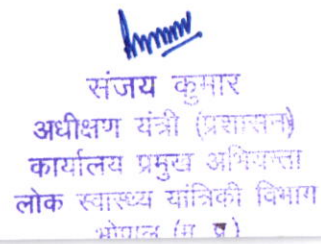 संजय कुमार
अधीक्षण यंत्री (प्रशासन)
कार्यालय प्रमुख अभियन्ता
लोक स्वास्थ्य यांत्रिकी विभाग
भोपाल (म प्र)